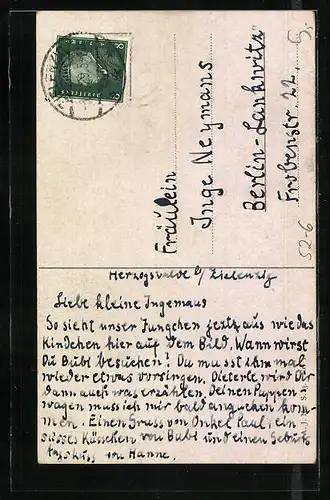 Fräulein
Inge Neymans
Berlin-Lankwitz
Frobenstr. 22
52-6
Herzogswalde b/ Zielenzig
Liebe kleine Ingemaus
So sieht unser Jungchen jetzt aus wie das
Kindchen hier auf dem Bild. Wann wirst
Du Bubi besuchen! Du musst ihm mal
wieder etwas vorsingen. Dieterle wird Dir
dann auch was erzählen. Deinen Puppen
wagen muss ich mir bald angucken kom-
men. Einen Gruss von Onkel Paul, ein
süsses Küsschen von Bubi und einen Geburts
tagskuss von Hanne.